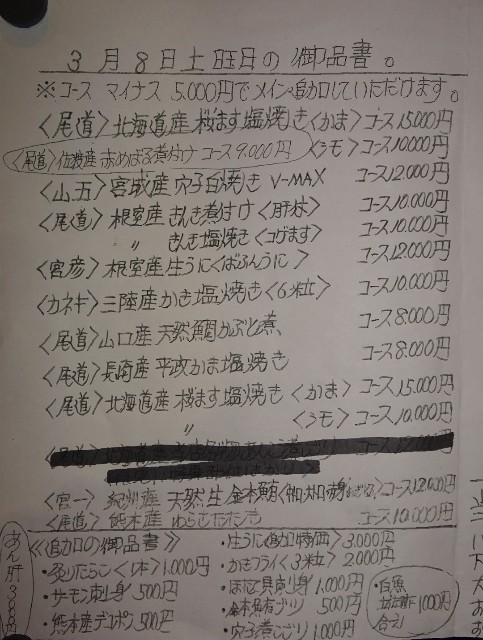 3月8日土曜日の御品書。
※コース マイナス 5.000円でメイン追加していただけます。
〈尾道〉北海道産 桜ます塩焼き〈かま〉コース15.000円
〈うモ〉コース10.000円
〈尾道〉佐渡産 赤めばる煮付け コース9.000円
〈山五〉宮城産 穴子白焼き V-MAX コース12.000円
〈尾道〉根室産 きんき煮付け〈肝付〉コース10.000円
〃 きんき塩焼き〈コゲます〉コース10.000円
〈宮彦〉根室産生うに〈ばふんうに〉コース12.000円
〈カネキ〉三陸産かき塩焼き〈6粒〉コース10.000円
〈尾道〉山口産 天然鯛かぶと煮 コース8.000円
〈尾道〉長崎産 平政かま塩焼き コース8.000円
〈尾道〉北海道産 桜ます塩焼き〈かま〉コース15.000円
〃 〈うモ〉コース10.000円
〈宮一〉紀州産 天然生本鮪 コース12.000円
〈尾道〉熊本産 わらさたたき コース10.000円
あん肝 300円
《追加の御品書》
・炙りたらこ〈1本〉1.000円
・サーモン刺身 500円
・熊本産デコポン 500円
・生うに〈追加特価〉3.000円
・かきフライ〈3粒〉2.000円
・ほたて貝刺身 1.000円
500円
・穴子煮こごり 1.000円
・白魚
1000円
合え